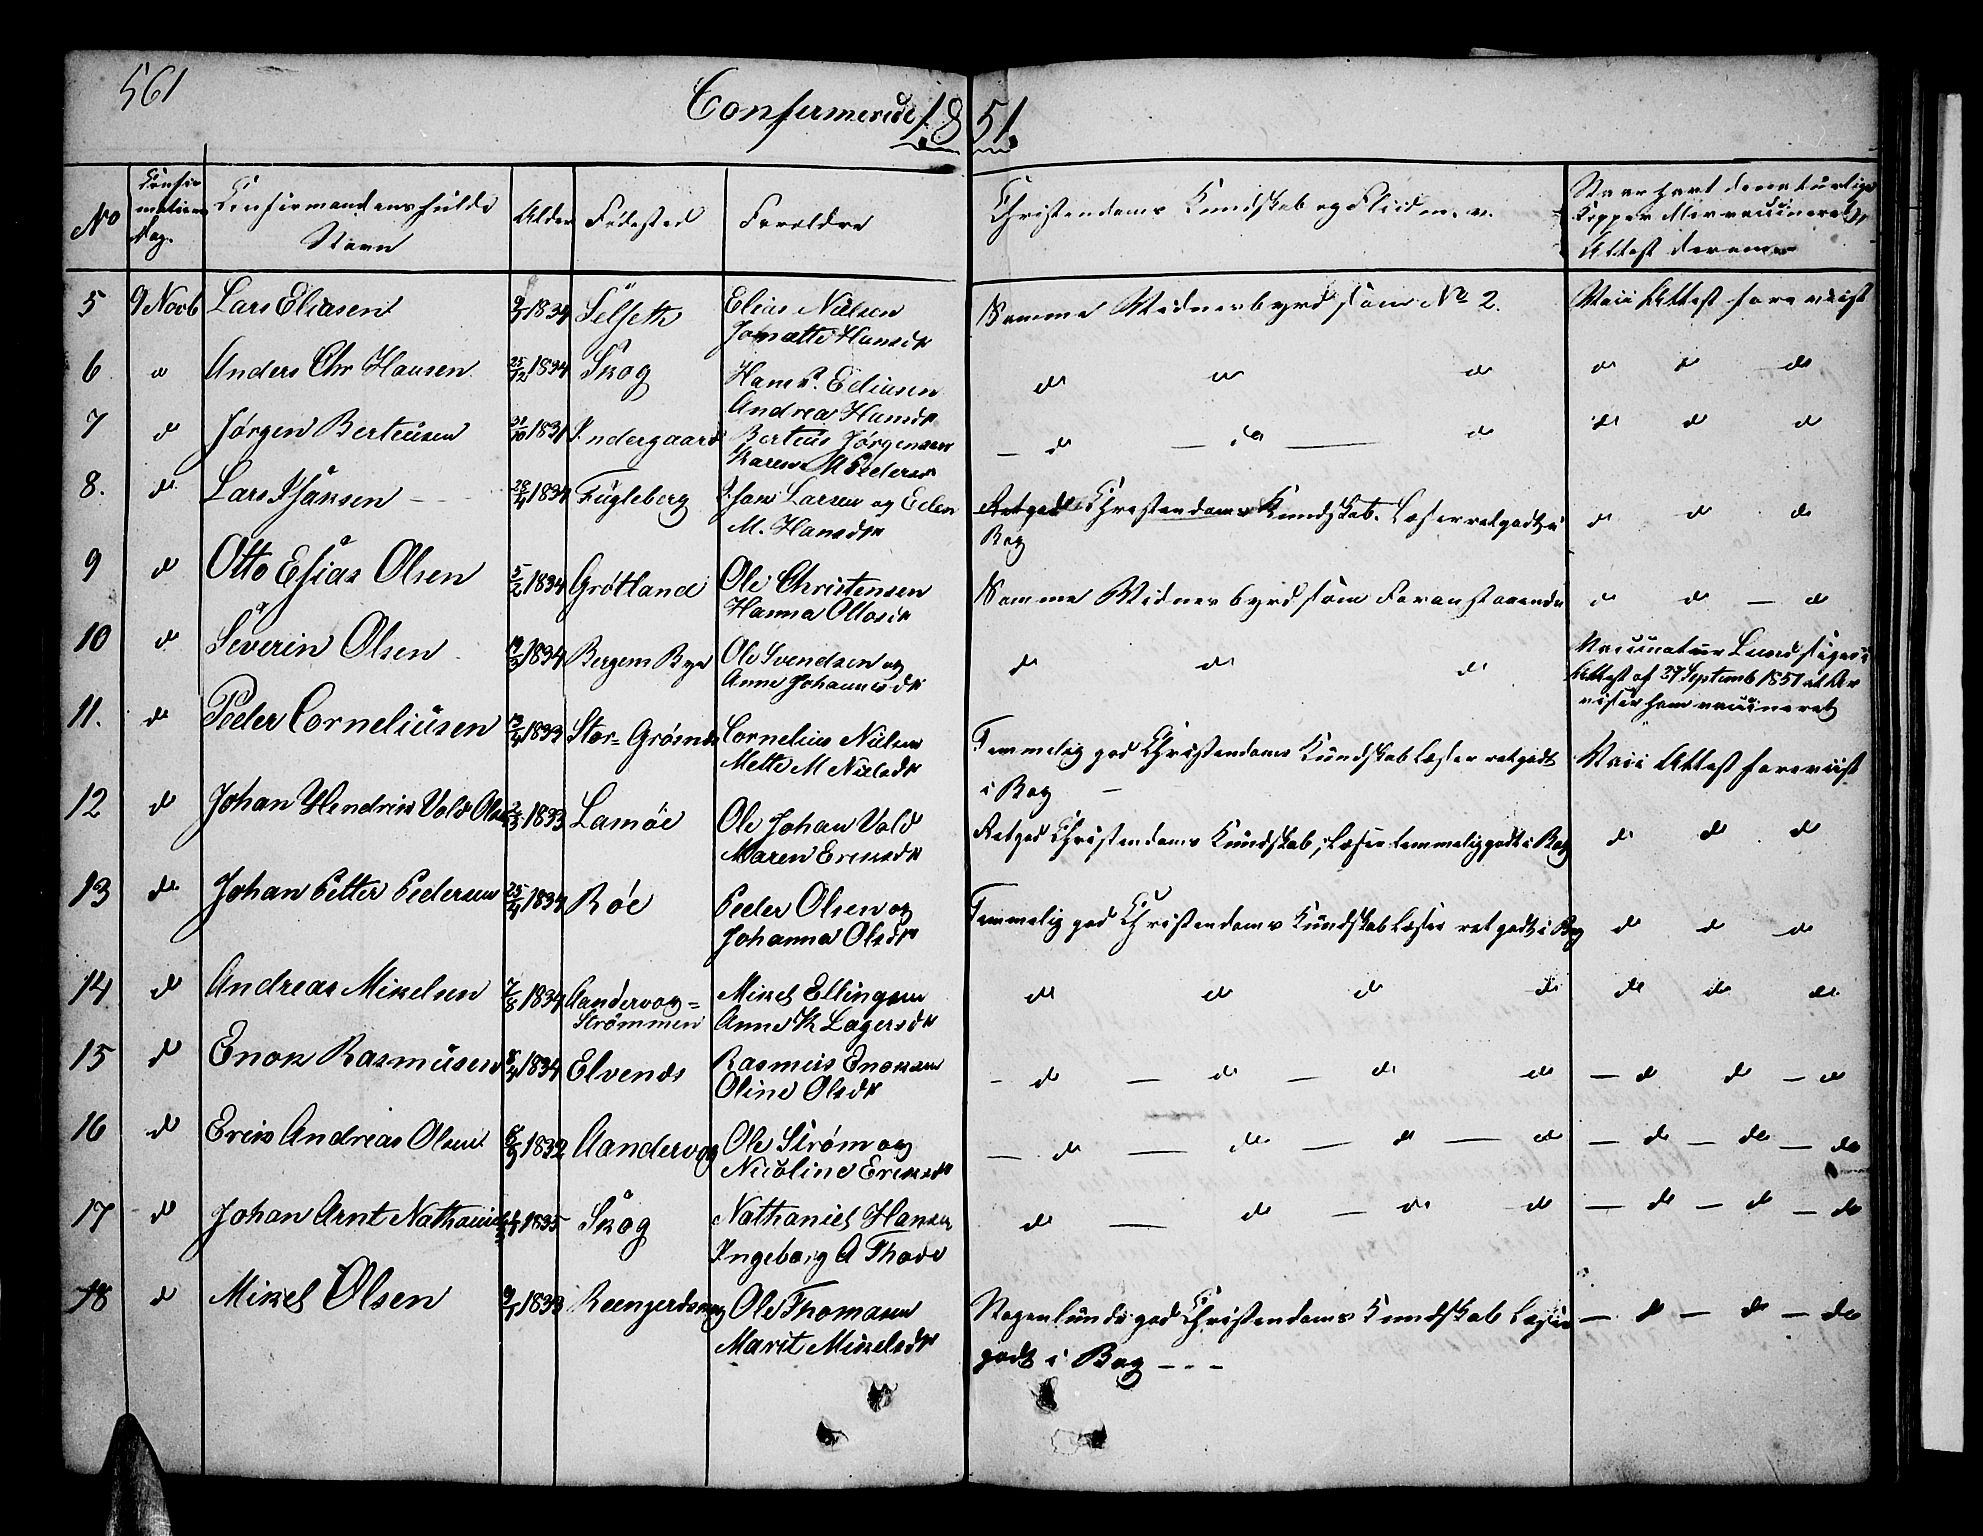 561
Confirmerede 1851.
No
Confir-
mations
Dag.
Confirmandens fulde
Navn
Alder
Fødested
Forældre
Christendoms Kundskab og Fliid m. v.
Naar havt de naturlige
Kopper eller vaccineret,
Attest derom
5 9 Novb Lars Eliasen 1834 Selseth Elias Nilsen
Hansdtr
Samme Vidnesbyrd som No 2. Vacc Attest foreviist
6 Anders Chr Hansen 25/12 1834 Skog Hans P. Ediasen
Andrea Hansdtr
do do do do do do
7 do Jørgen Berteusen 1831 Indergaard Berteus Jørgensen
Karen M Pedersd
do do do do do do
8. do Lars Ihansen 28/4 1834 Fugleberg Ihan Larsen og Ellen
M. Hansdtr
Retgod Christendoms Kundskab. Læser retgodt i
Bog
do do do
9 do Otto Esias Olsen 5/2 1834 Grøtland Ole Christensen
Hanna Ottosdtr
Samme Vidnesbyrd som Foranstaaende do do do
10 do Severin Olsen 1834 Bergens Bye Ole Svendsen og
Anne Johannesdtr
do do do
Vaccinateur Lund siger i
Attest af 27 Septemb 1851 at
vist er ham vaccineret
11. do Peder Corneliusen 1833 Stor-Grøsnæs Cornelius Nielsen
Mette M Nielsdtr
Temmelig god Christendoms Kundskab Læser retgodt
i Bog
Vacc Attest foreviist
12 do Johan Hendrik Vold Olsen 1833 Lamøe Ole Johan Vold
Maren Eriksdtr
Retgod Christendoms Kundskab, Læser temmelig godt i Bog do do do
13 do Johan Petter Pedersen 25/4 1834 Røe Peder Olsen og
Johanna Olsdtr
Temmelig god Christendoms Kundskab Læser ret godt i Bog do do do
14 do Andreas Mikelsen 7/8 1834 Aandervog-
Strømmen
Mikel Ellingsen
Anne K Lagersdtr
do do do do do do do
15 do Enok Rasmusen 8/4 1834 Elvenes Rasmus Enoksen
Oline Olsdtr
do do do do do do do
16 do Erik Andreas Olsen 1832 Aandervog Ole Strøm og
Nicoline Eriksdtr
do do do do do do do
17 do Johan Arnt Nathaniels 1835 Skog Nathaniel Hansen
Ingeborg A Thode
do do do do do do do
18 do Mikel Olsen 1833 Ole Thomasen
Marit Mikelsdtr
Nogenlunde god Christendoms Kundskab Læser
godt i Bog - - -
do do do